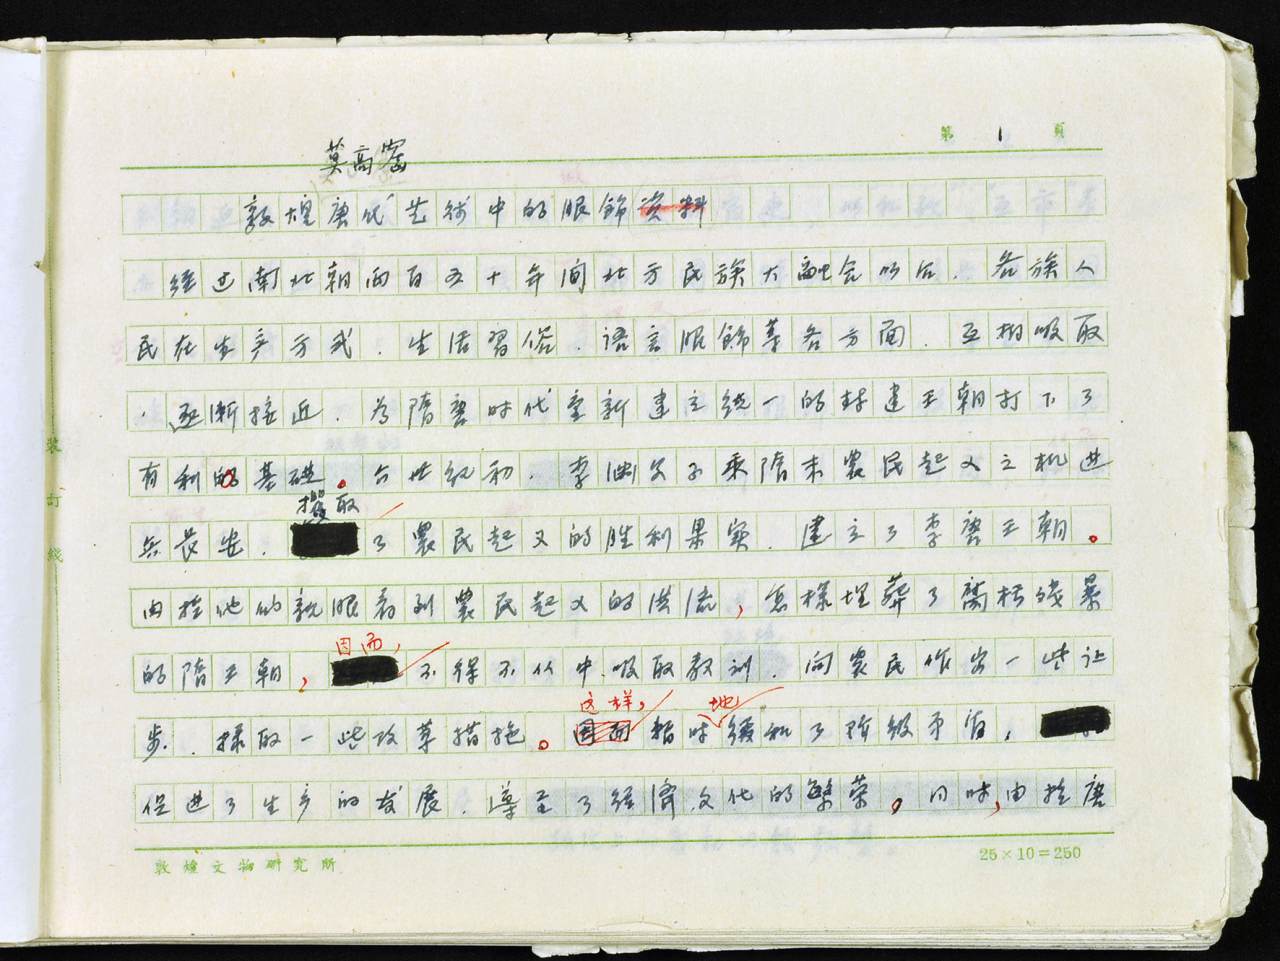 第 1 頁
莫高窟
敦煌唐代艺术中的服飾资料
经过南北朝两百五十年间北方民族大融会以后，各族人
民在生产方式，生活習俗，语言服飾等各方面，互相吸取
，逐渐接近，为隋唐时代重新建立统一的封建王朝打下了
有利的基礎。六世纪初，李渊父子乘隋末農民起义之机进
攫取
兵長安，了農民起义的胜利果実，建立了李唐王朝。
由於他们親眼看到農民起义的洪流，怎样埋葬了腐朽残暴
因而，
的隋王朝，不得不从中吸取教训，向農民作出一些让
这样， 地
步，採取一些改革措施。因而暂时缓和了阶级矛盾，
促进了生产的发展，導至了经济文化的繁荣。同时，由於唐
敦煌文物研究所
25×10=250
裝訂綫